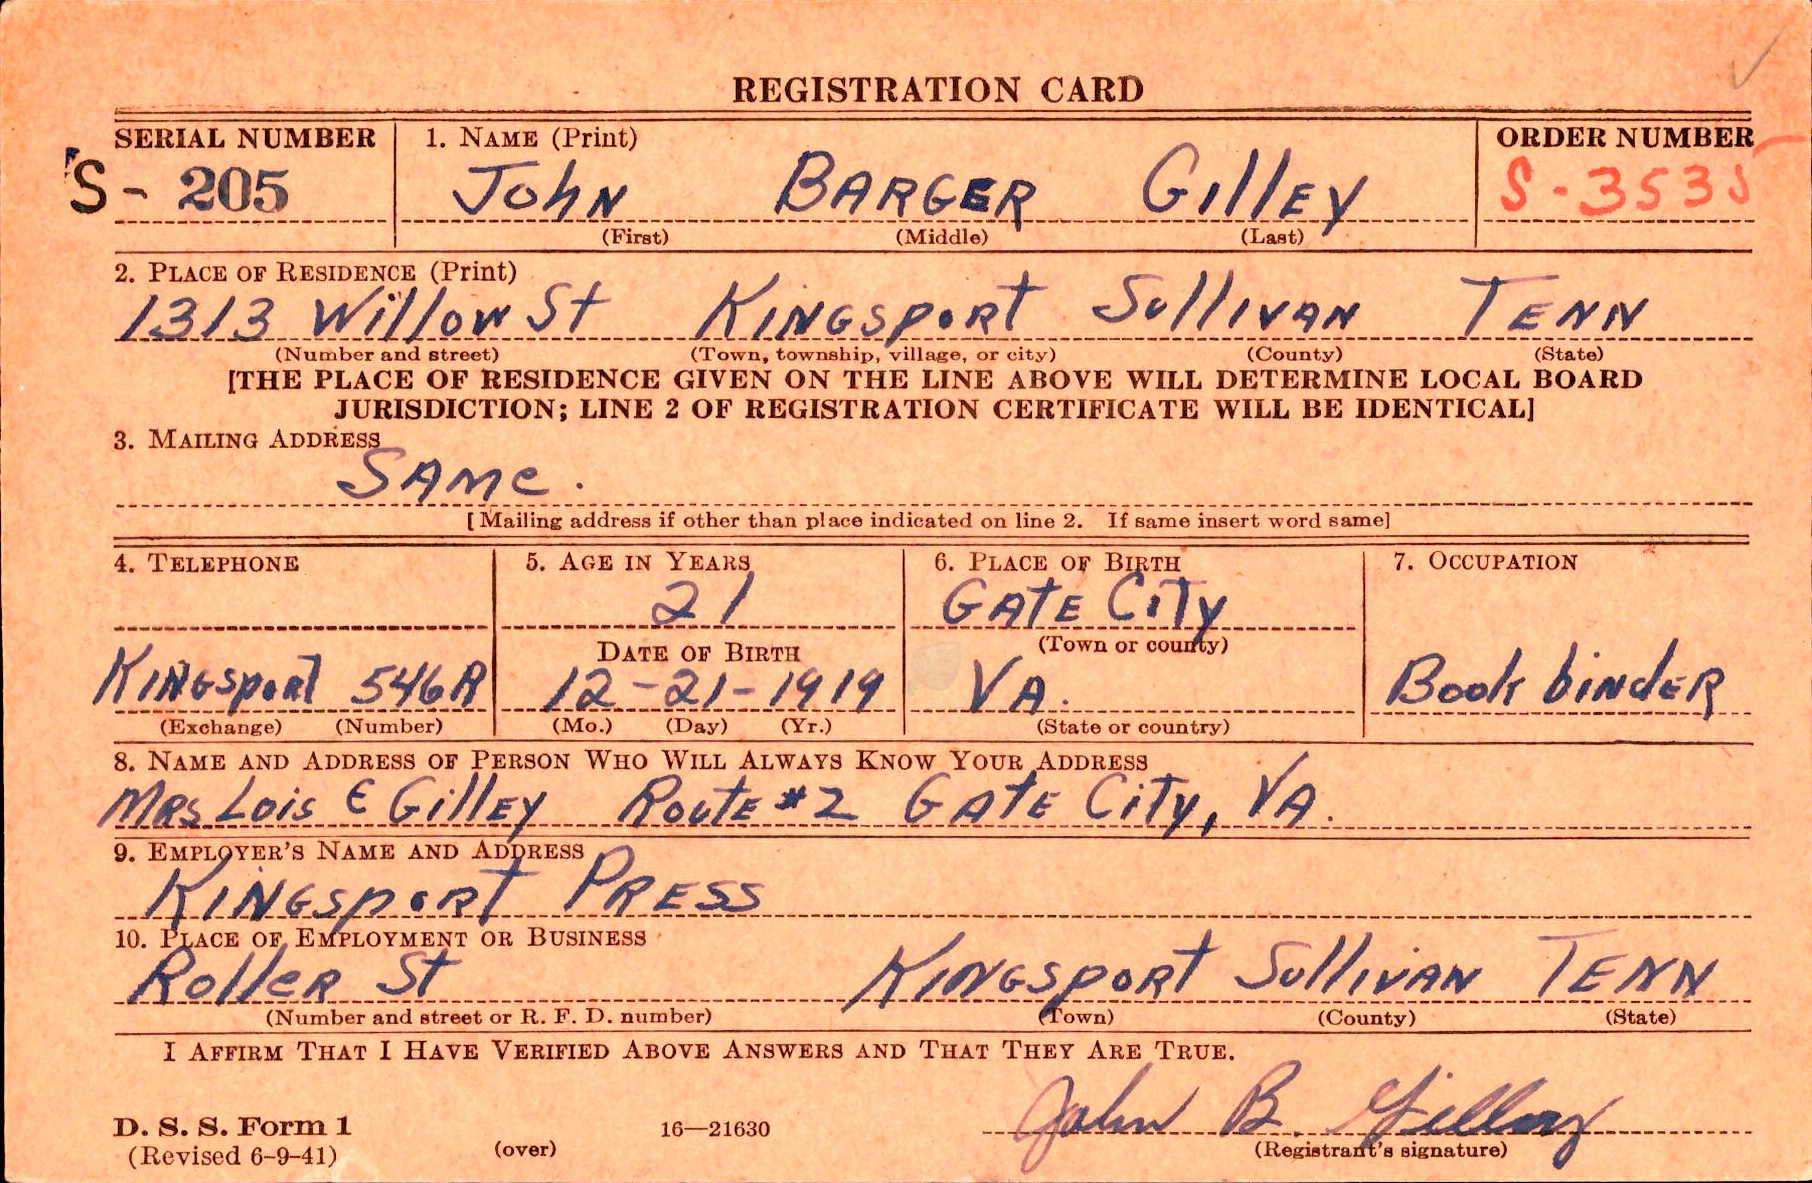 REGISTRATION CARD
SERIAL NUMBER 1. NAME (Print) ORDER NUMBER
S - 205 John BARGER GillEY S-3535
(First) (Middle) (Last)
2. PLACE OF RESIDENCE (Print)
1313 Willow St KINGSPORT SullIVAN TENN
(Number and street) (Town, township, village, or city) (County) (State)
[THE PLACE OF RESIDENCE GIVEN ON THE LINE ABOVE WILL DETERMINE LOCAL BOARD
JURISDICTION; LINE 2 OF REGISTRATION CERTIFICATE WILL BE IDENTICAL]
3. MAILING ADDRESS
SAMe.
[Mailing address if other than place indicated on line 2. If same insert word same]
4. TELEPHONE 5. AGE IN YEARS 6. PLACE OF BIRTH 7. OCCUPATION
21 GATE CiTy
DATE OF BIRTH (Town or county)
KINGSPORT 546R 12-21-1919 VA. Book binder
(Exchange) (Number) (Mo.) (Day) (Yr.) (State or country)
8. NAME AND ADDRESS OF PERSON WHO WILL ALWAYS KNOW YOUR ADDRESS
MRS Lois E GillEY RoutE #2 GATE CiTy, VA.
9. EMPLOYER'S NAME AND ADDRESS
KINGSPORT PRESS
10. PLACE OF EMPLOYMENT OR BUSINESS
Roller St KINGSPORT SullIVAN TENN
(Number and street or R. F. D. number) (Town) (County) (State)
I AFFIRM THAT I HAVE VERIFIED ABOVE ANSWERS AND THAT THEY ARE TRUE.
John B. Gilley
D. S. S. Form 1 16—21630
(Revised 6-9-41) (over) (Registrant's signature)